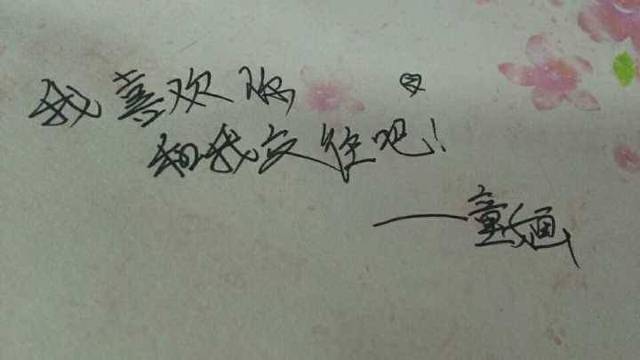 我喜欢你
和我交往吧!
——童画